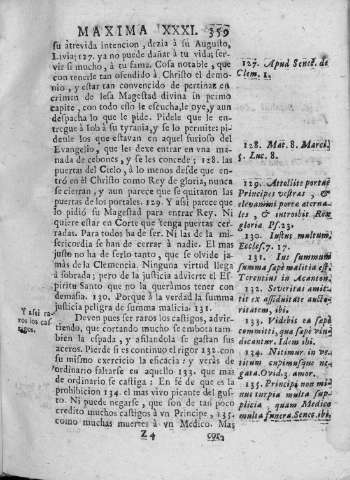 MAXIMA XXXI. 359
su atrevida intencion, dezia à su Augusto,
Livia; 127. ya no puede dañar à tu vida; ser-
vir si mucho, à tu fama. Cosa notable, que
con tenerle tan ofendido à Christo el demo-
nio, y estar tan convencido de pertinaz en
crimen de lesa Magestad divina in primo
capite, con todo esso le escucha, le oye, y aun
despacha lo que le pide. Pidele que le en-
tregue à Iob à su tyrania, y se lo permite: pi-
denle los que estavan en aquel furioso del
Evangelio, que les dexe entrar en vna ma-
nada de cebones, y se les concede; 128. las
puertas del Cielo, à lo menos desde que en-
trò en èl Christo como Rey de gloria, nunca
se cierran, y aun parece que se quitaron las
puertas de los portales. 129. Y assi parece que
lo pidiò su Magestad para entrar Rey. Ni
quiere estar en Corte que tenga puertas cer-
radas. Para todos ha de ser. Ni las de la mi-
sericordia se han de cerrar à nadie. El mas
justo no ha de serlo tanto, que se olvide ja-
màs de la Clemencia. Ninguna virtud llega
à sobrada; pero de la justicia advierte el Es-
piritu Santo que no la querámos tener con
demasia. 130. Porque à la verdad la summa
justicia peligra de summa malicia. 131.
Deven pues ser raros los castigos, advir-
tiendo, que cortando mucho se embota tam-
bien la espada, y afilandola se gastan sus
aceros. Pierde si es continuo el rigor 132. con
su mismo exercicio la eficacia: y veràs de
ordinario faltarse en aquello 133. que mas
de ordinario se castiga: En fé de que es la
prohibicion 134. el mas vivo picante del gus-
to. Ni puede negarse, que son de tan poco
credito muchos castigos à vn Principe, 135.
como muchas muertes à vn Medico. Mas
Z 4
Y assi ra-
ros los cas-
tigos.
127. Apud Senec. de
Clem. 1.
128. Mat. 8. Marci
5. Luc. 8.
129. Attollite portas
Principes vestras, &
elevamini portæ æterna-
les, & introibit Rex
gloriæ Ps. 23.
130. Iustus multum,
Eccles. 7. 17.
131. Ius summum
summa sæpè malitia est.
Terentius in
132. Severitas amit-
tit ex assiduitate aucto-
ritatem, ibi.
133. Videbis ea sæpè
committi, quæ sæpè vin-
dicantur. Idem ibi.
134. Nitimur in ve-
titum cupimusque ne-
gata. Ovid. 3. amor.
135. Principi non mi-
nus turpia multa sup-
plicia, quam Medico
multa funera. Senec. ibi.